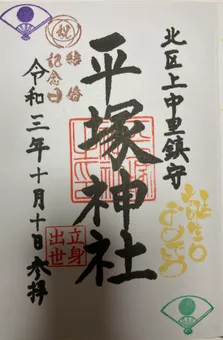 北区上中里鎮守
平塚神社
祝
結婚
記念日
令和三年十月十日参拝
立身
出世